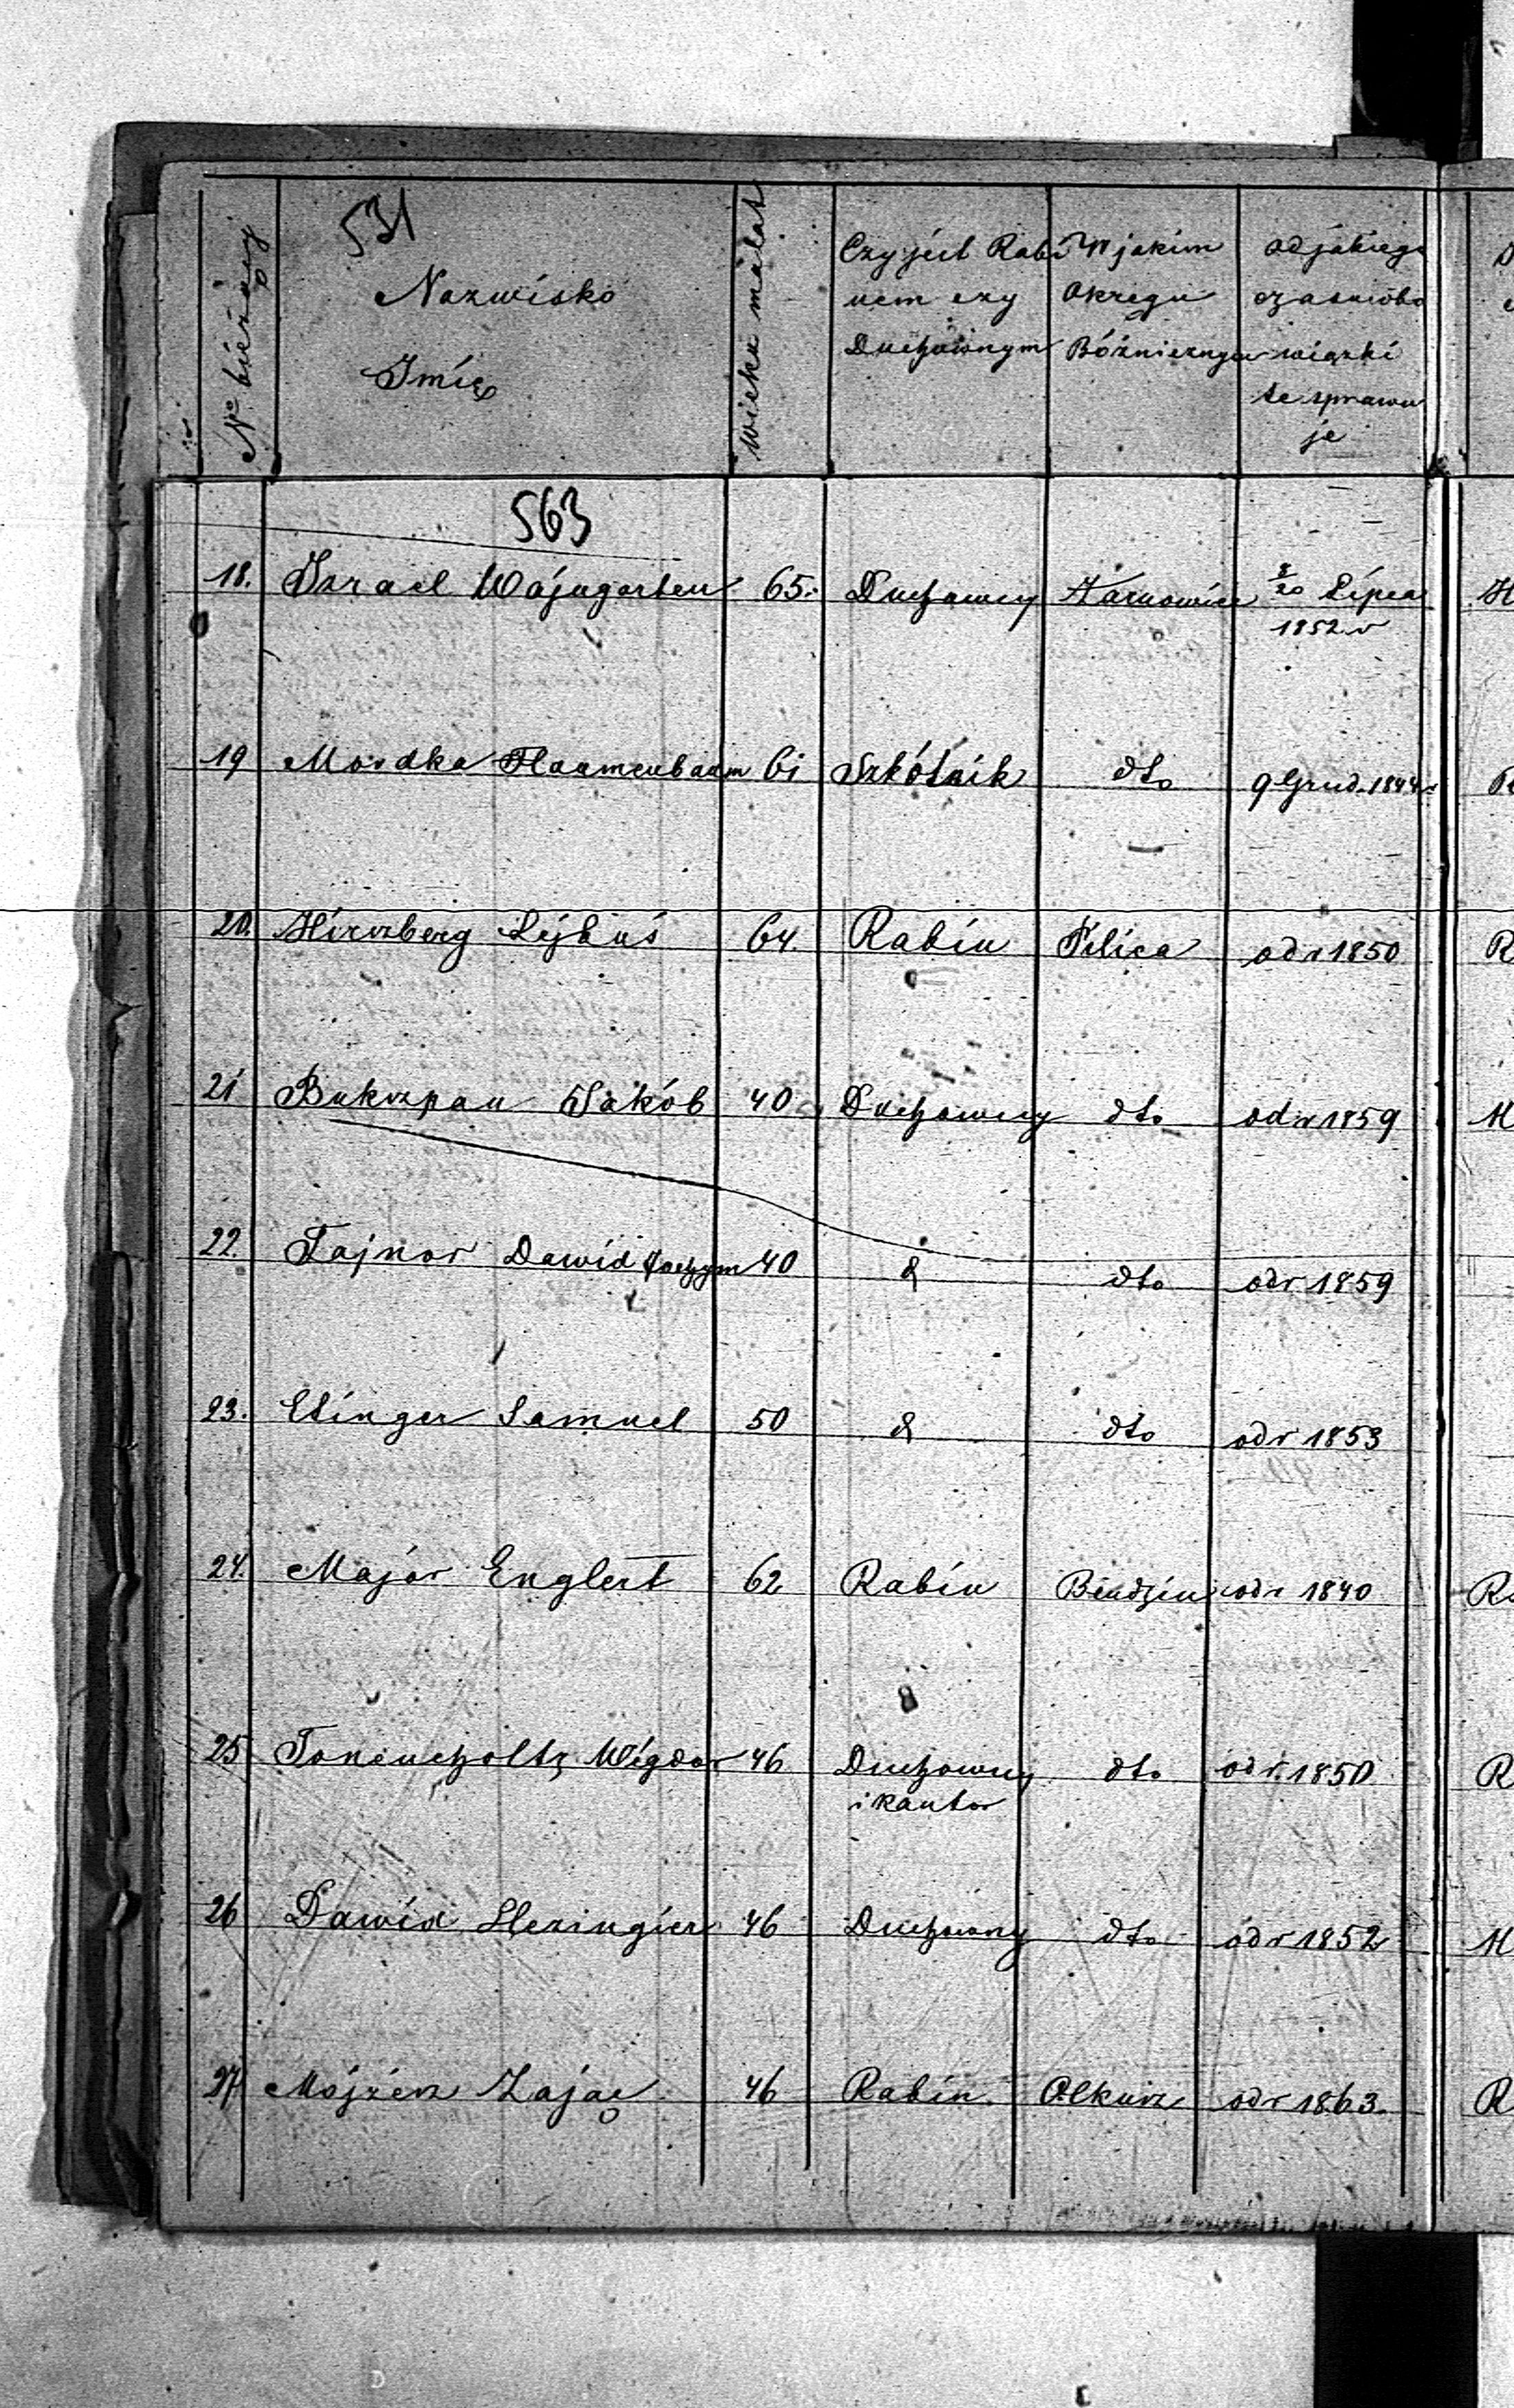 531
№ bieżący
Nazwisko
Imię
Wieku ma lat
Czy jest Rabi
nem czy
Duchownym
W jakim
Okręgu
Bóżniczym
od jakiego
czasu obo
wiązki
te sprawu
je
563
18. Izrael Wajngarten 65. Duchowny Żarnowiec 8/20 Lipca
1852 r
19 Mordka Flaumenbaum 61 Szkólnik dto 9 Grud. 1844 r
20. Hirszberg Lejbuś 64. Rabin Pilica od r 1850
21 Bukszpan Jakób 40 Duchowny dto od r 1859
22. Tajner Dawid Joachym 40 d dto od r 1859
23. Etinger Samuel 50 d dto od r 1853
24. Major Englert 62 Rabin Bendzin od r 1840
25 Wigdor 46 Duchowny dto od r. 1850
i kantor
26 Dawid Hezingier 46 Duchowny dto od r 1852
27 Mojżesz Zając 46 Rabin Olkusz od r 1863.